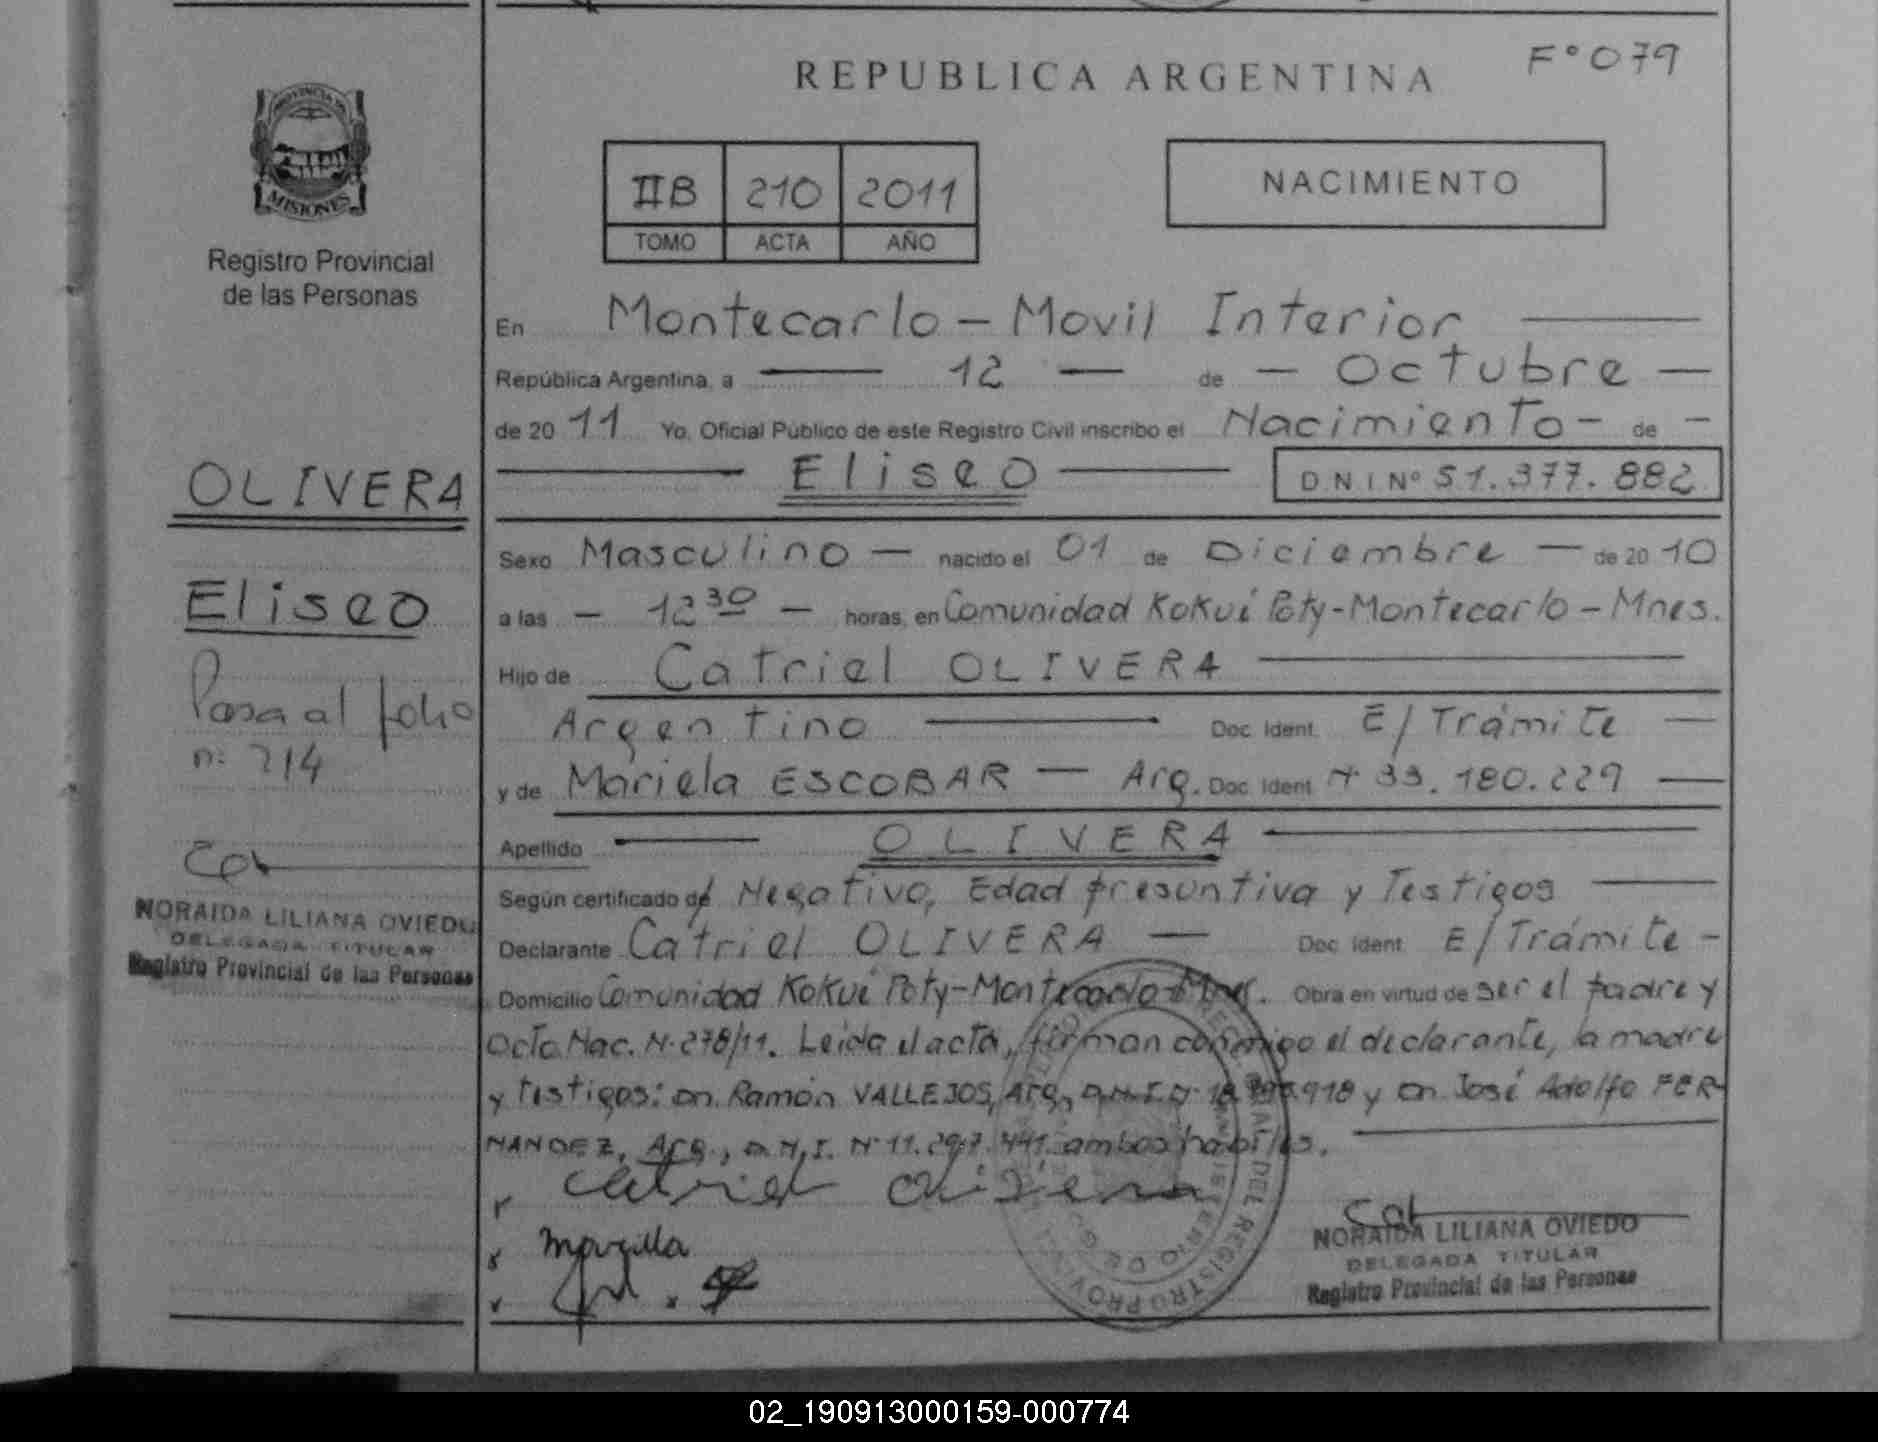 REPUBLICA ARGENTINA
Fº 079
PROVINCIA DE
MISIONES
Registro Provincial
de las Personas
IIB 210 2011
TOMO ACTA AÑO
NACIMIENTO
En Montecarlo - Movil Interior
República Argentina, a 12 de - Octubre
de 2011 Yo, Oficial Público de este Registro Civil inscribo el Nacimiento - de -
Eliseo D.N.I Nº 51.377.882
OLIVERA
Eliseo
Pasa al folio
n: 214
NORAIDA LILIANA OVIEDO
DELEGADA TITULAR
Registro Provincial de las Personas
Sexo Masculino - nacido el 01 de Diciembre - de 2010
a las - 12 30 - horas, en Comunidad Kokué Poty-Montecarlo - Mnes.
Hijo de Catriel OLIVERA
Argentino Doc. Ident. E/Trámite
y de Mariela ESCOBAR - Arg. Doc. Ident. Nº 33.180.229
Apellido OLIVERA
Según certificado de Negativo, Edad presuntiva y Testigos
Declarante Catriel OLIVERA - Doc. Ident. E/Trámite -
Domicilio Comunidad Kokué Poty-Montecarlo-Mnes. Obra en virtud de ser el padre y
Octo. Nac. Nº 278/11. Leída el acta, firman conmigo el declarante, la madre
y testigos: Dn. Ramón VALLEJOS, Arg., D.N.I. Nº 18. .918 y Dn José Adolfo FER-
NANDEZ, Arg., D.N.I. Nº 11.297.441. ambos habiles.
Catriel Olivera
Mariella
NORAIDA LILIANA OVIEDO
DELEGADA TITULAR
Registro Provincial de las Personas
02_190913000159-000774